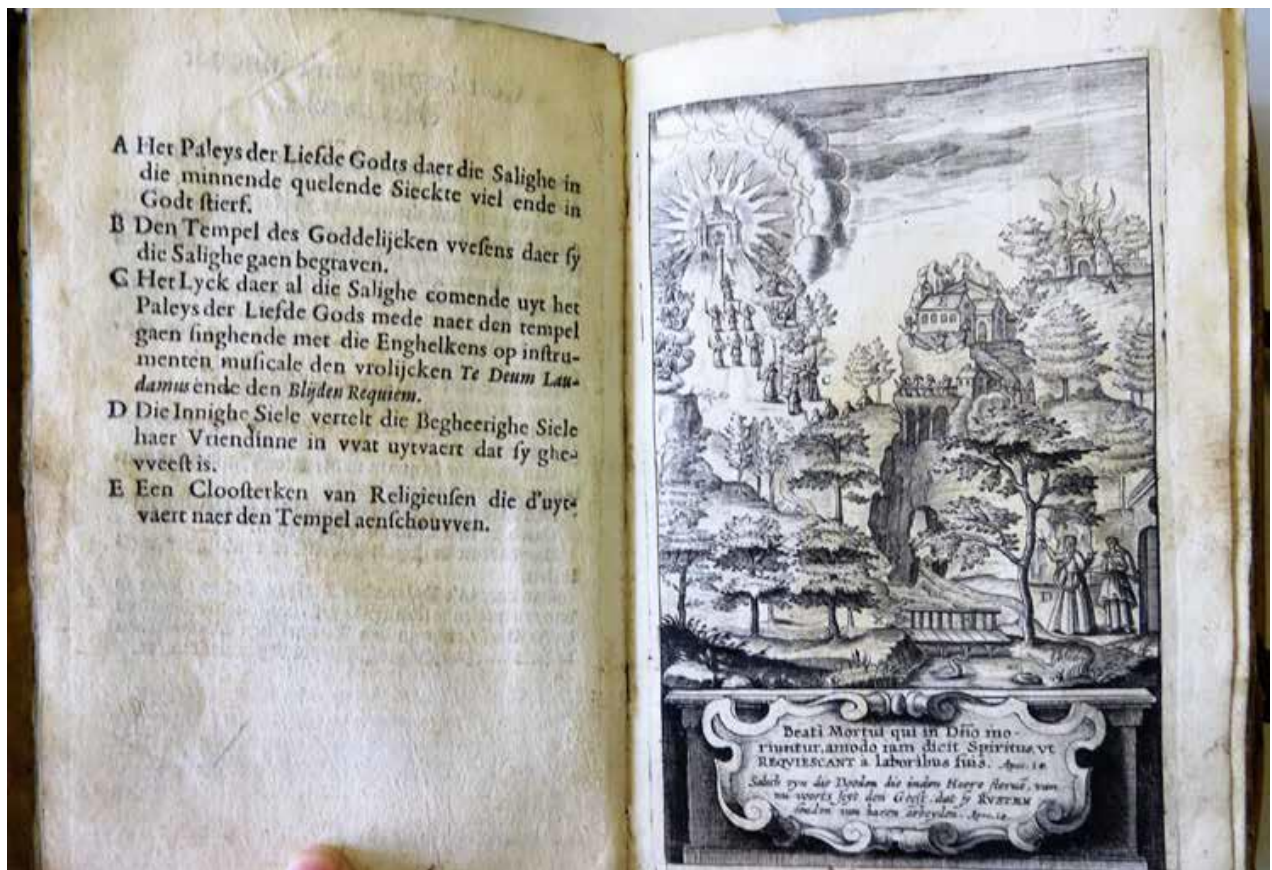 A Het Paleys der Liefde Godts daer die Salighe in
die minnende quelende Sieckte viel ende in
Godt ſtierf.
B Den Tempel des Goddelijcken vveſens daer ſy
die Salighe gaen begraven.
C Het Lyck daer al die Salighe comende uyt het
Paleys der Liefde Gods mede naer den tempel
gaen ſinghende met die Enghelkens op inſtru-
menten muſicale den vrolijcken Te Deum Lau-
damus ende den Blijden Requiem.
D Die Innighe Siele vertelt die Begheerighe Siele
haer Vriendinne in vvat uytvaert dat ſy ghe-
vveeſt is.
E Een Clooſterken van Religieuſen die d'uyt-
vaert naer den Tempel aenſchouvven.
Beati Mortui qui in Dño mo-
riuntur, amodo iam dicit Spiritus, vt
REQVIESCANT a laboribus ſuis. Apoc. 14
Salich zyn die Dooden die inden Heere ſtervē, van
nu voorts ſegt den Geeſt, dat ſy RVSTEN
ſouden van haren arbeyden. Apoc. 14